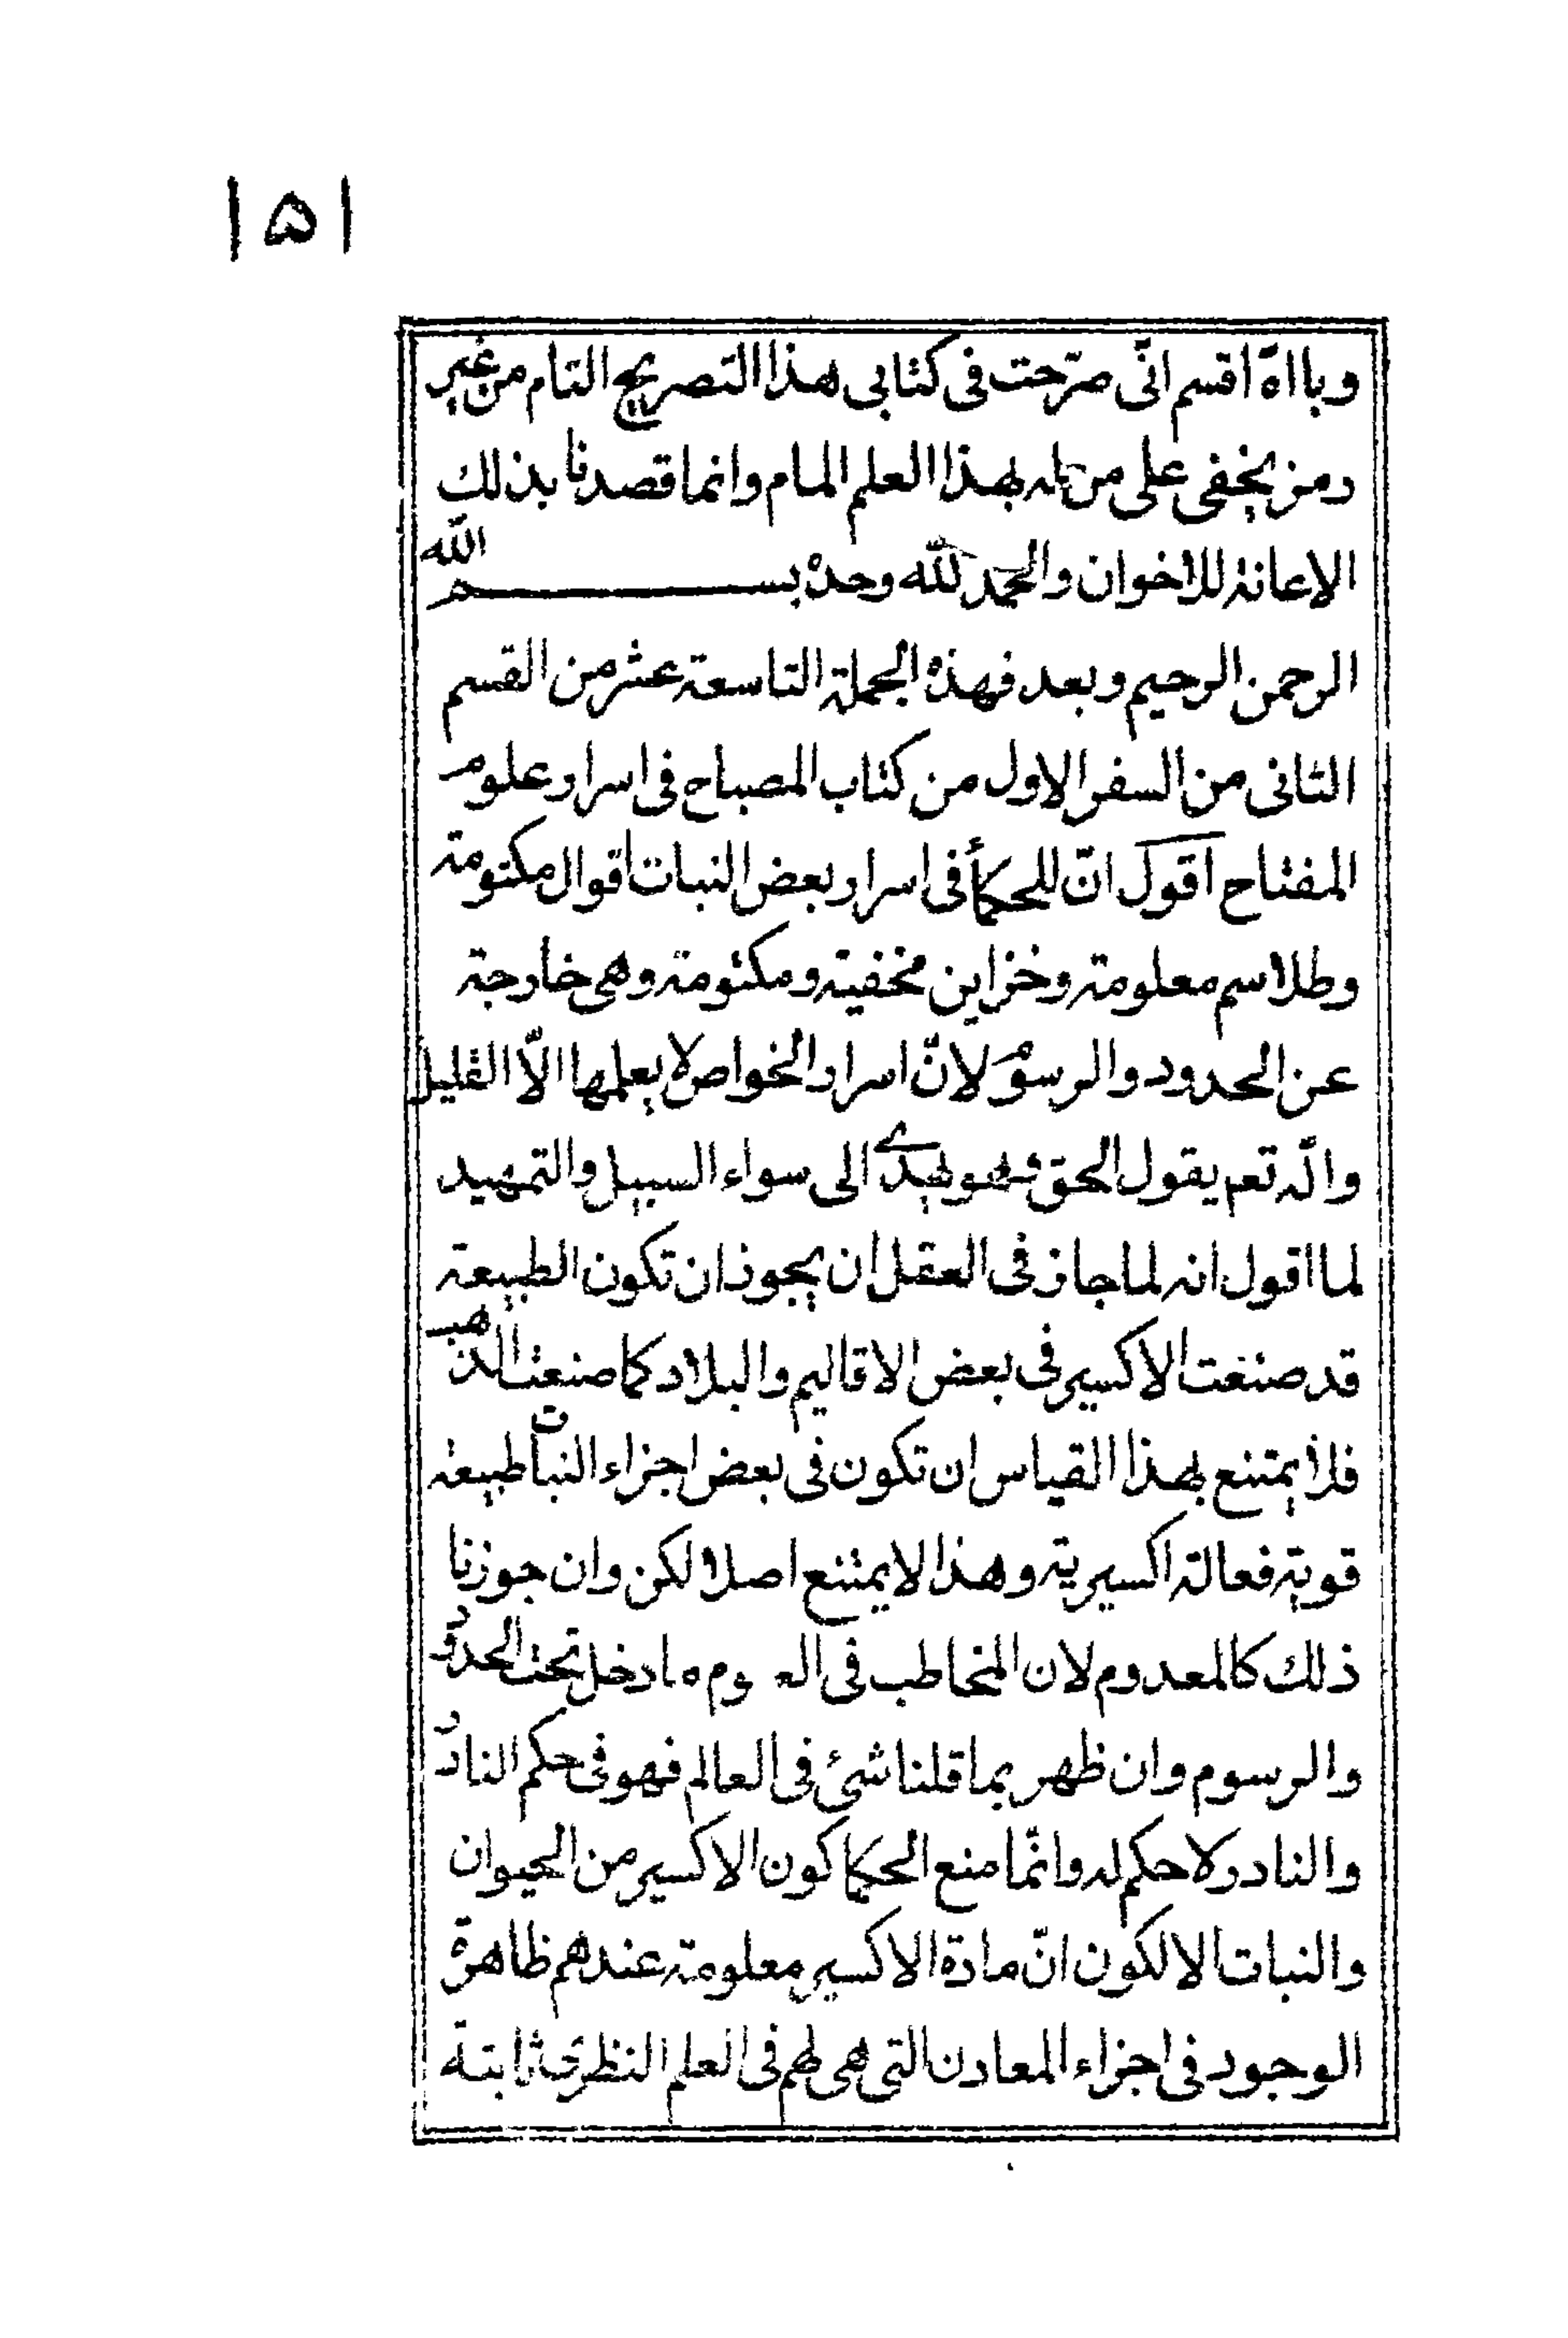 ١٥١
وبالله اقسم انّى صرّحت فى كتابى هذا التصريح التام من غير
رمز يخفى على من له بهذا العلم المام وانما قصدنا بذلك
الاعانة للاخوان والحمد لله وحده بسم الله
الرحمن الرحيم وبعد فهذه الجملة التاسعة عشر من القسم
الثانى من السفر الاول من كتاب المصباح فى اسرار علوم
المفتاح اقول انّ للحكمأ فى اسرار بعض النبات اقوال مكتومة
وطلاسم معلومة وخزاين مخفية ومكتومة وهى خارجة
عن الحدود والرسوم لانّ اسرار الخواص لا يعلمها الّا القليل
والله تعم يقول الحق وهو يهدى الى سواء السبيل والتمهيد
لما اقول انه لما جاز فى العقل ان يجوز ان تكون الطبيعة
قد صنعت الاكسير فى بعض الاقاليم والبلاد كما صنعت الذهب
فلا يمتنع بهذا القياس ان تكون فى بعض اجزاء النبات طبيعة
قوية فعالة اكسيرية وهذا لا يمتنع اصلا لكن وان جوزنا
ذلك كالمعدوم لان المخاطب فى العلوم ما دخل تحت الحدود
والرسوم وان ظهر بما قلنا شئ فى العالم فهو فى حكم النادر
والنادر ولا حكم له وانّما منع الحكما كون الاكسير من الحيوان
والنبات الا لكون انّ مادة الاكسير معلومة عندهم ظاهرة
الوجود فى اجزاء المعادن التى هى لهم فى العلم النظرى ثابتة